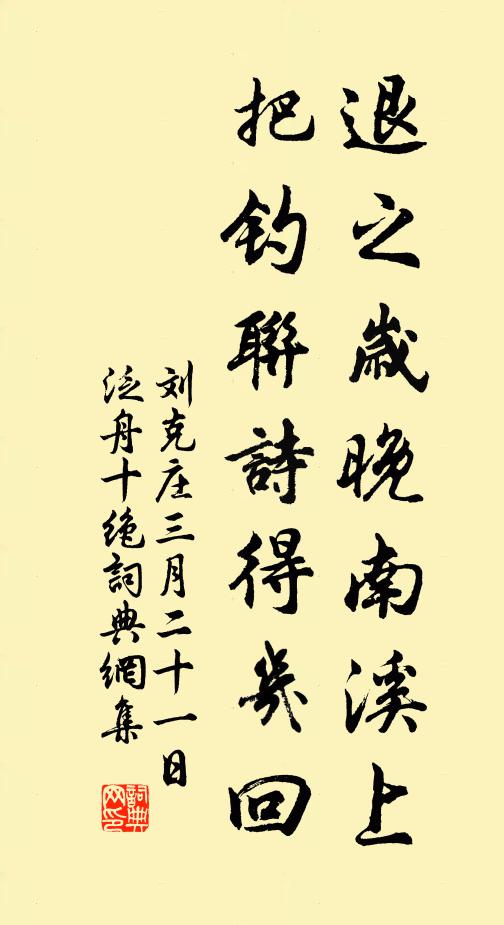 退之歲晚南溪上
把釣聯詩得幾回
刘克庄三月二十一日
泛舟十绝詞典網集
詞典网印